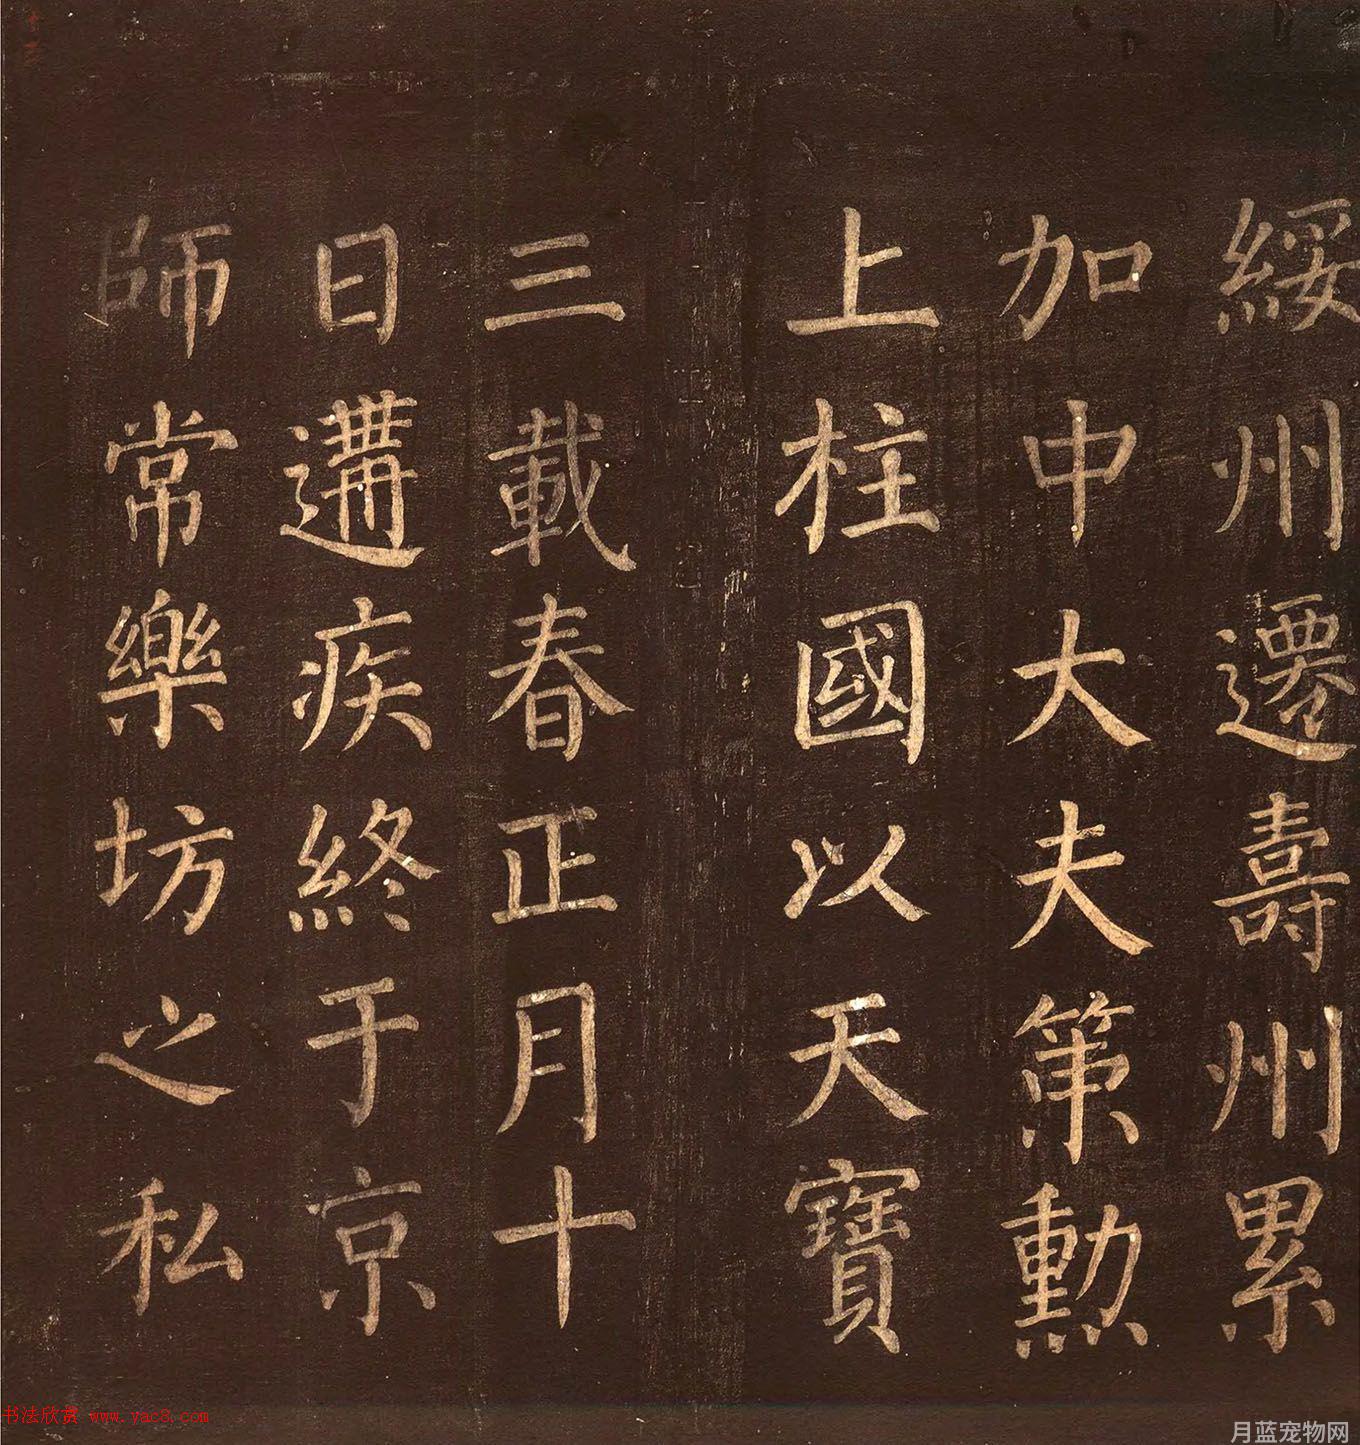 綏州遷壽州累
加中大夫第勳
上柱國以天寶
三載春正月十
日遘疾終于京
師常樂坊之私
书法欣赏 www.yac8.com
月蓝宠物网